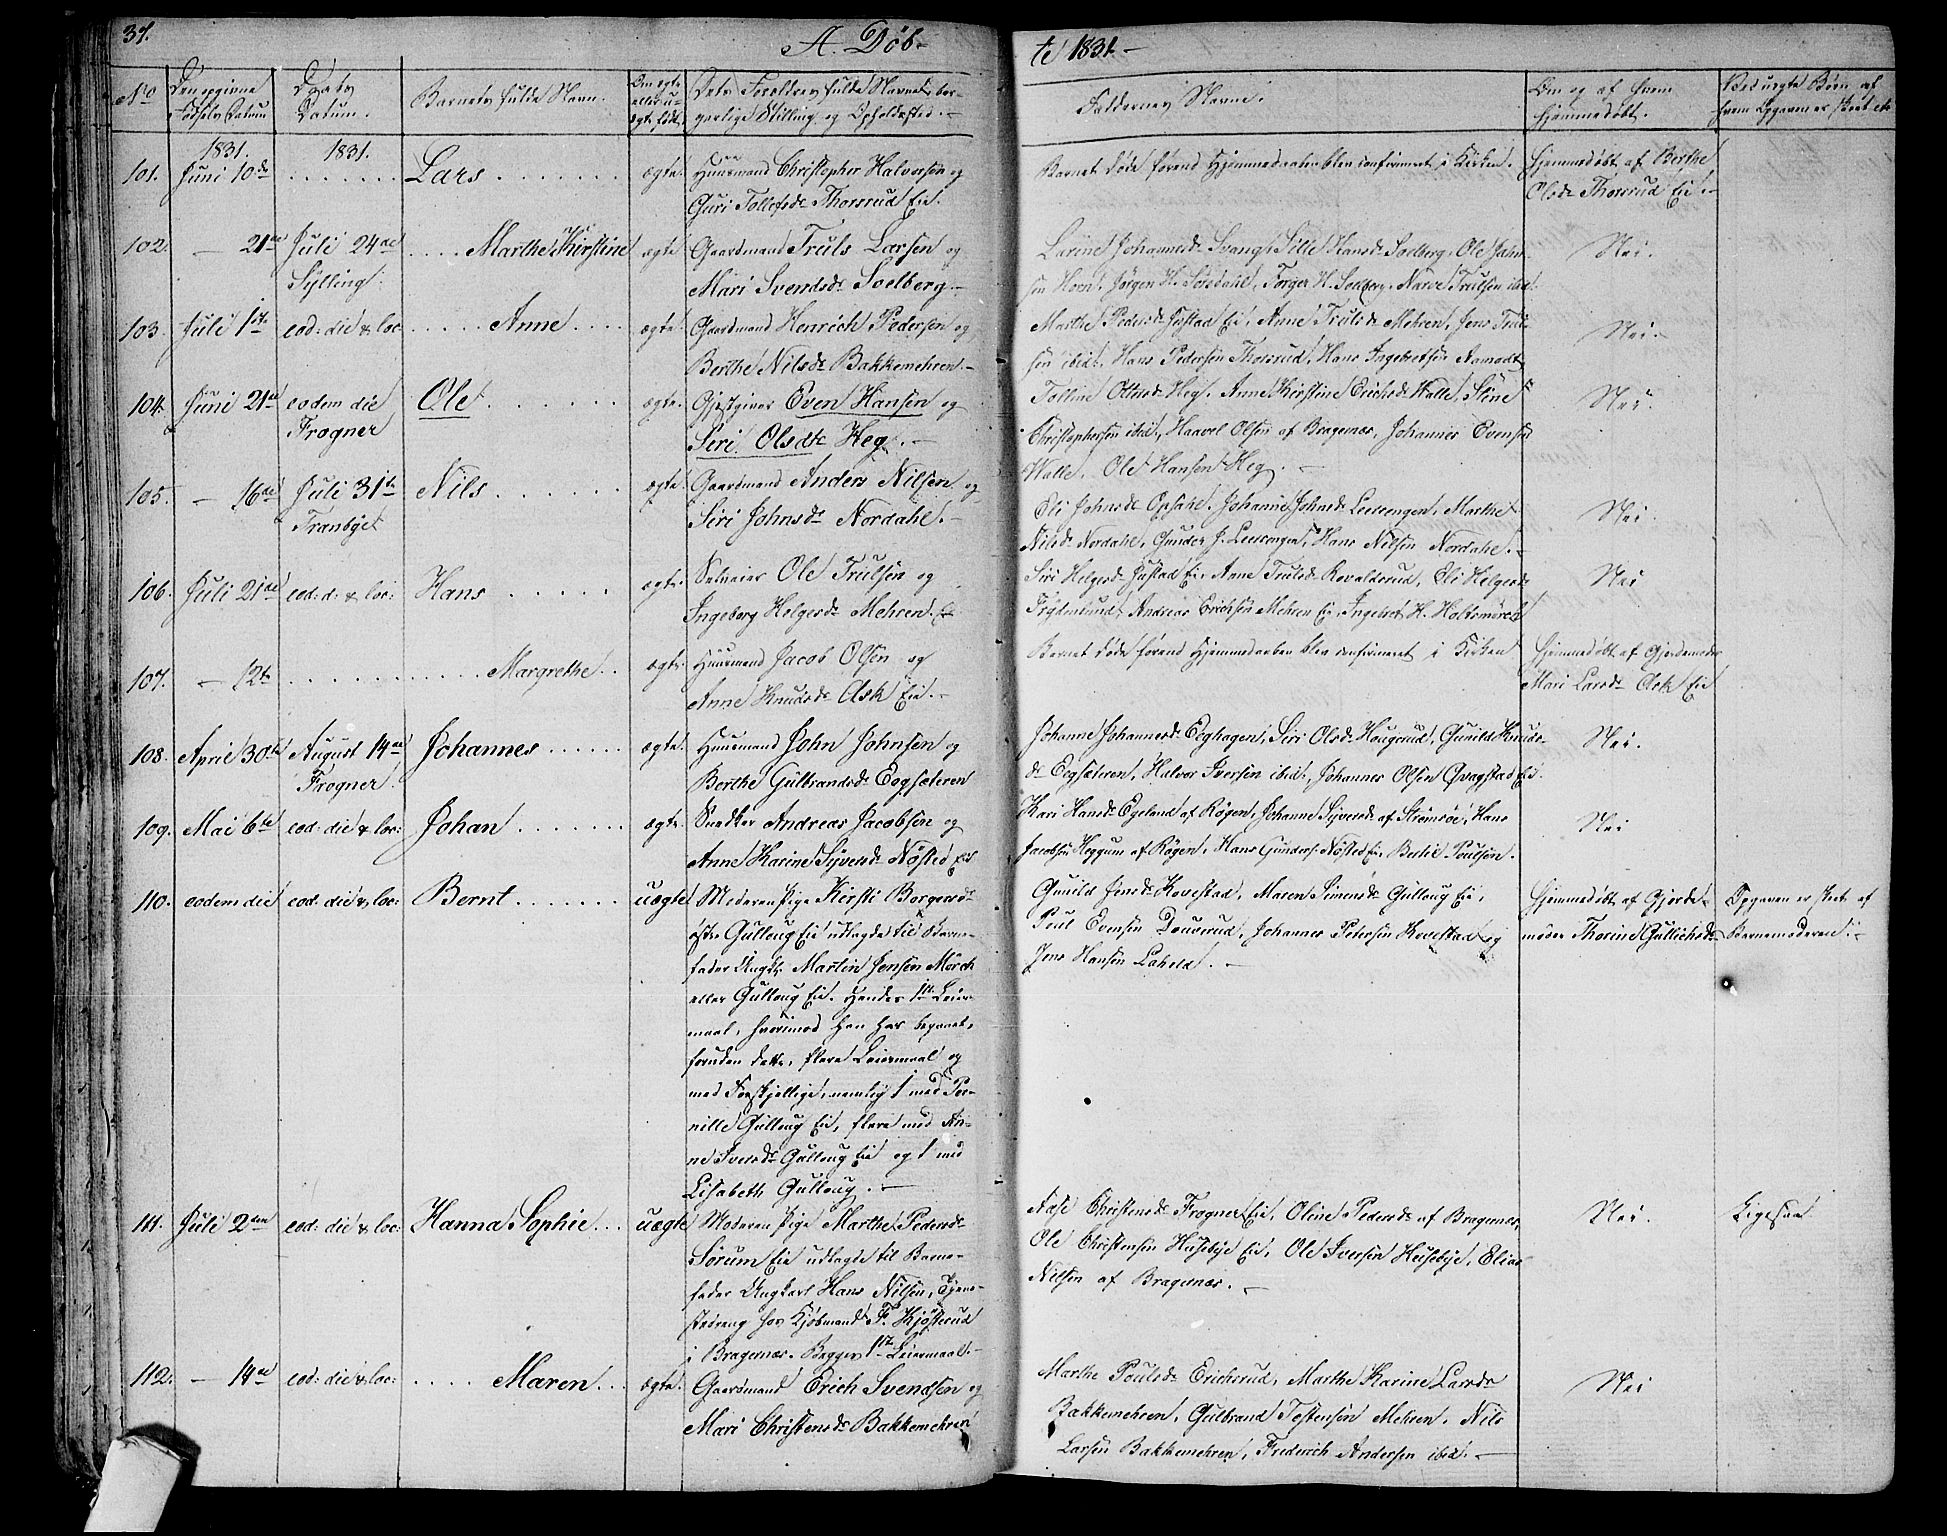 37.
A. Døb-
te 1831.-
No
Den opgivne Fødsels Datum
Daabs Datum.
Barnets fulde Navn.
Om ægte eller uægte født.
Dets Forældres fulde Navne, borgerlige Stilling og Opholdssted.-
Faddernes Navne.
Om og af hvem hjemmedøbt.
Ved uægte Børn af hvem Opgaven er skeet etc
1831.
1831.
101. Juni 10de . . . . . . . Lars . . . . . . . ægte. Huusmand Christopher Halvorsen og
Guri Tollefsdr Thorsrud Eie.
Barnet døde førend Hjemmedaaben blev confirmeret i Kirken.
Hjemmedøbt af Berthe
Olsdr Thorsrud Eie.-
102. - 21de Juli 24de . . . . Marthe Kirstine ægte Gaardmand Truls Larsen og
Sylling.
Mari Svendsdr Solberg.-
Larine Johannesdr Svangs, Sille Hansdr Solberg, Ole Jahn-
sen Horn, Jørgen H. Sørsdahl, Torger H. Solberg, Narve Trulsen ibid.
Nei.
103. Juli 1ste eod: die & loc . . . . . Anne . . . . ægte. Gaardmand Henrich Pedersen og
Berthe Nilsdr Bakkemehren.-
Marthe Pedersdr Justad Eie, Anne Trulsdr Mehren, Jens Trul-
sen ibid:, Hans Pedersen Thorsrud, Hans Ingebretsen Aamodt.
Nei.-
104. Juni 21de eodem die Ole . . . . . . . ægte. Gjestgiver Even Hansen og
Frogner
Siri Olsdtr Heg.-
Tolline Ottersdr Heg, Anne Kirstine Erichsdr Walle, Stine
Christophersen ibid., Haavel Olsen af Bragenæs, Johannes Evensen
Walle, Ole Hansen Heg.-
Nei.
105. - 16de Juli 31te Nils . . . . . . . ægte. Gaardmand Anders Nilsen og
Tranbye
Siri Johnsdr Nordahl.-
Eli Johnsdr Opsahl, Johanne Johnsdr Leerengen, Marthe
Nilsdr Nordahl, Gunder J. Leerengen, Hans Nilsen Nordahl.-
Nei.
106. Juli 21de eod: d: & loc: Hans . . . . . ægte. Selveier Ole Trulsen og
Ingeborg Helgesdr Mehren.
Siri Helgesdr Justad Eie, Anne Trulsdr Rovaldsrud, Eli Helgesdr
Frydenlund, Andreas Erichsen Mehren Eie, Ingebret H. Holtsmarch
Nei
107. - 12te . . . . . . . . . Margrethe . . ægte. Huusmand Jacob Olsen og
Anne Knudsdr Ask Eie.-
Barnet døde førend Hjemmedaaben blev confirmeret i Kirken
Hjemmedøbt af Gjordemoder
Mari Larsdr Ask Eie
108. April 30te August 14de Johannes . . . . . ægte. Huusmand John Johnsen og
Frogner
Berthe Gulbrandsdr Eegsæteren
Johanne Johannesdr Eeghagen, Siri Olsdr Hougerud, Gunild Knuds-
dr Eegsæteren, Halvor Iversen ibid:, Johannes Olsen Qvagstad Eie.
Nei.
109. Mai 6te eod: die & loc: Johan . . . . . . . ægte. Snedker Andreas Jacobsen og
Anne Karine Syversdr Nøsted Eie
Kari Hansdr Egeland af Røgen, Johanne Syversdr af Strømsøe, Hans
Jacobsen Heggum af Røgen, Hans Gunders. Nøsted Eie, Bertil Poulsen.
Nei
110. eodem die eod: die & loc: Bernt . . . . . . . uægte Moderen Pige Kirsti Borgersd-
atter Gulloug Eie udlagde til Barne-
fader Ungk. Martin Jensen Mørch
eller Gulloug Eie. Hendes 1ste Leier-
maal, hvorimod han har begaaet,
foruden dette, flere Leiermaal og
med Forskjellige, nemlig 1 med Per-
nille Gulloug Eie, flere med An-
ne Iversdr Gulloug Eie og 1 med
Lisabeth Gulloug.-
Gunild Jensdr Kovestad, Maren Simensdr Gulloug Eie,
Poul Evensen Douverud, Johannes Petersen Kovestad og
Jens Hansen Lahelld.-
Hjemmedøbt af Gjorde-
moder Thorine Gullichsdr
Opgaven er skeet af
Barnemoderen.-
111. Juli 2den eod: die & loc: Hanna Sophie . . . uægte Moderen Pige Marthe Pedersdr
Sørum Eie udlagde til Barne-
fader Ungkarl Hans Nilsen, Tjene-
stedreng hos Kjøbmand F. Kjøsterud
i Bragenæs. Begges 1ste Leiermaal.-
Aase Christensdr Frogner Eie, Oline Pedersdr af Bragenæs,
Ole Christensen Husebye Eie, Ole Iversen Husebye, Elias
Nilsen af Bragenæs.-
Nei.
Ligesaa
112. - 14de eod: die & loc: . . . . Maren . . . ægte. Gaardmand Erich Svendsen og
Mari Christensdr Bakkemehren
Marthe Poulsdr Erichsrud, Marthe Karine Larsdr
Bakkemehren, Gulbrand Torstensen Mehren, Nils
Larsen Bakkemehren, Friderich Andersen ibid:.-
Nei